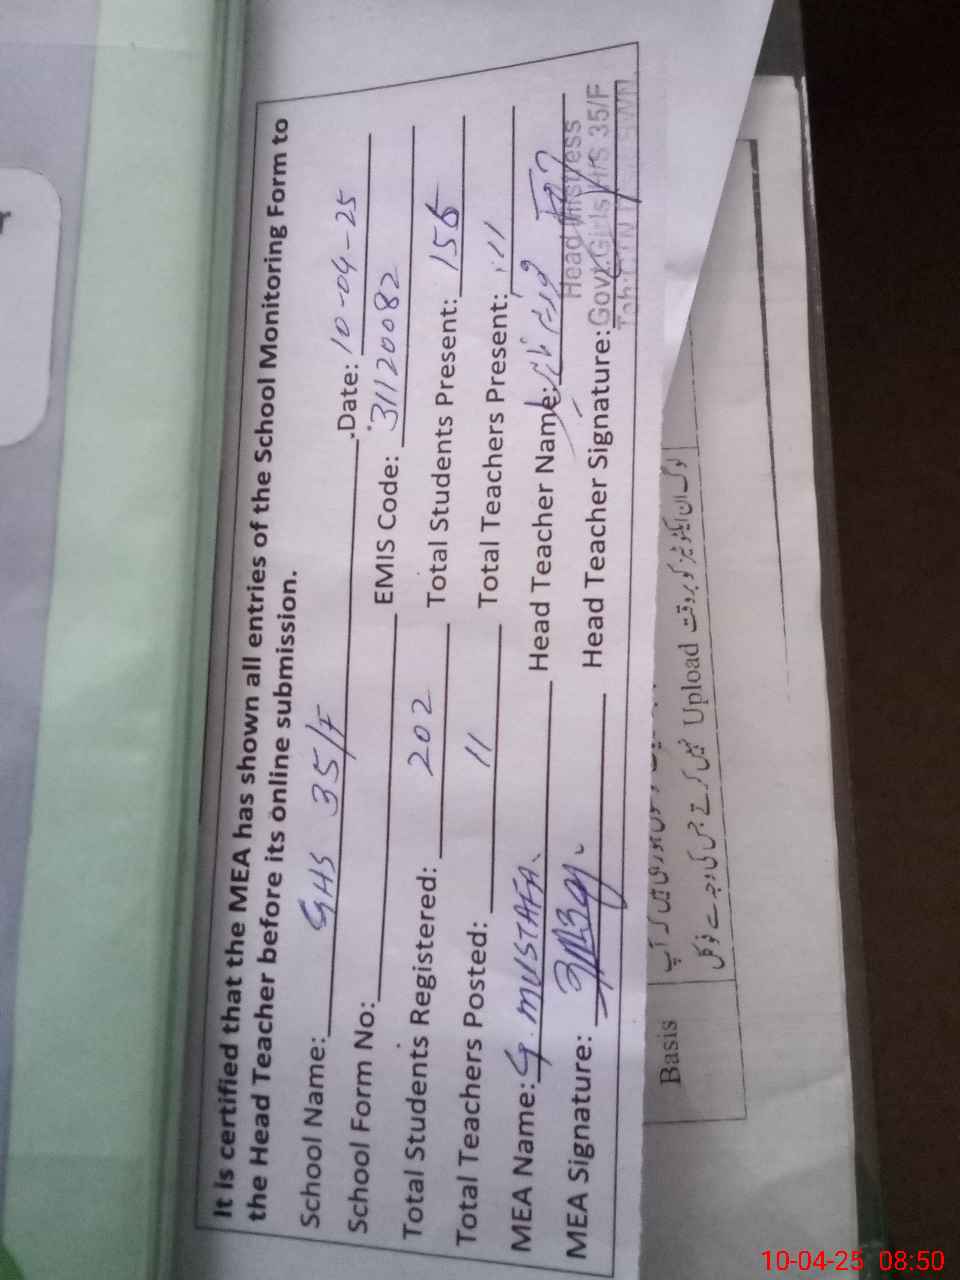 It is certified that the MEA has shown all entries of the School Monitoring Form to
the Head Teacher before its online submission.
School Name: GHS 35/F Date: 10-04-25
School Form No: EMIS Code: 31120082
Total Students Registered: 202 Total Students Present: 156
Total Teachers Posted: 11 Total Teachers Present: 11
MEA Name: G. MUSTAFA Head Teacher Name:
MEA Signature: Head Teacher Signature:
Head Mistress
Govt. Girls H/S 35/F
Basis
Upload نہیں کرتے جس کی وجہ سے
لوگ ان ایکٹویٹیز کو بروقت
10-04-25 08:50